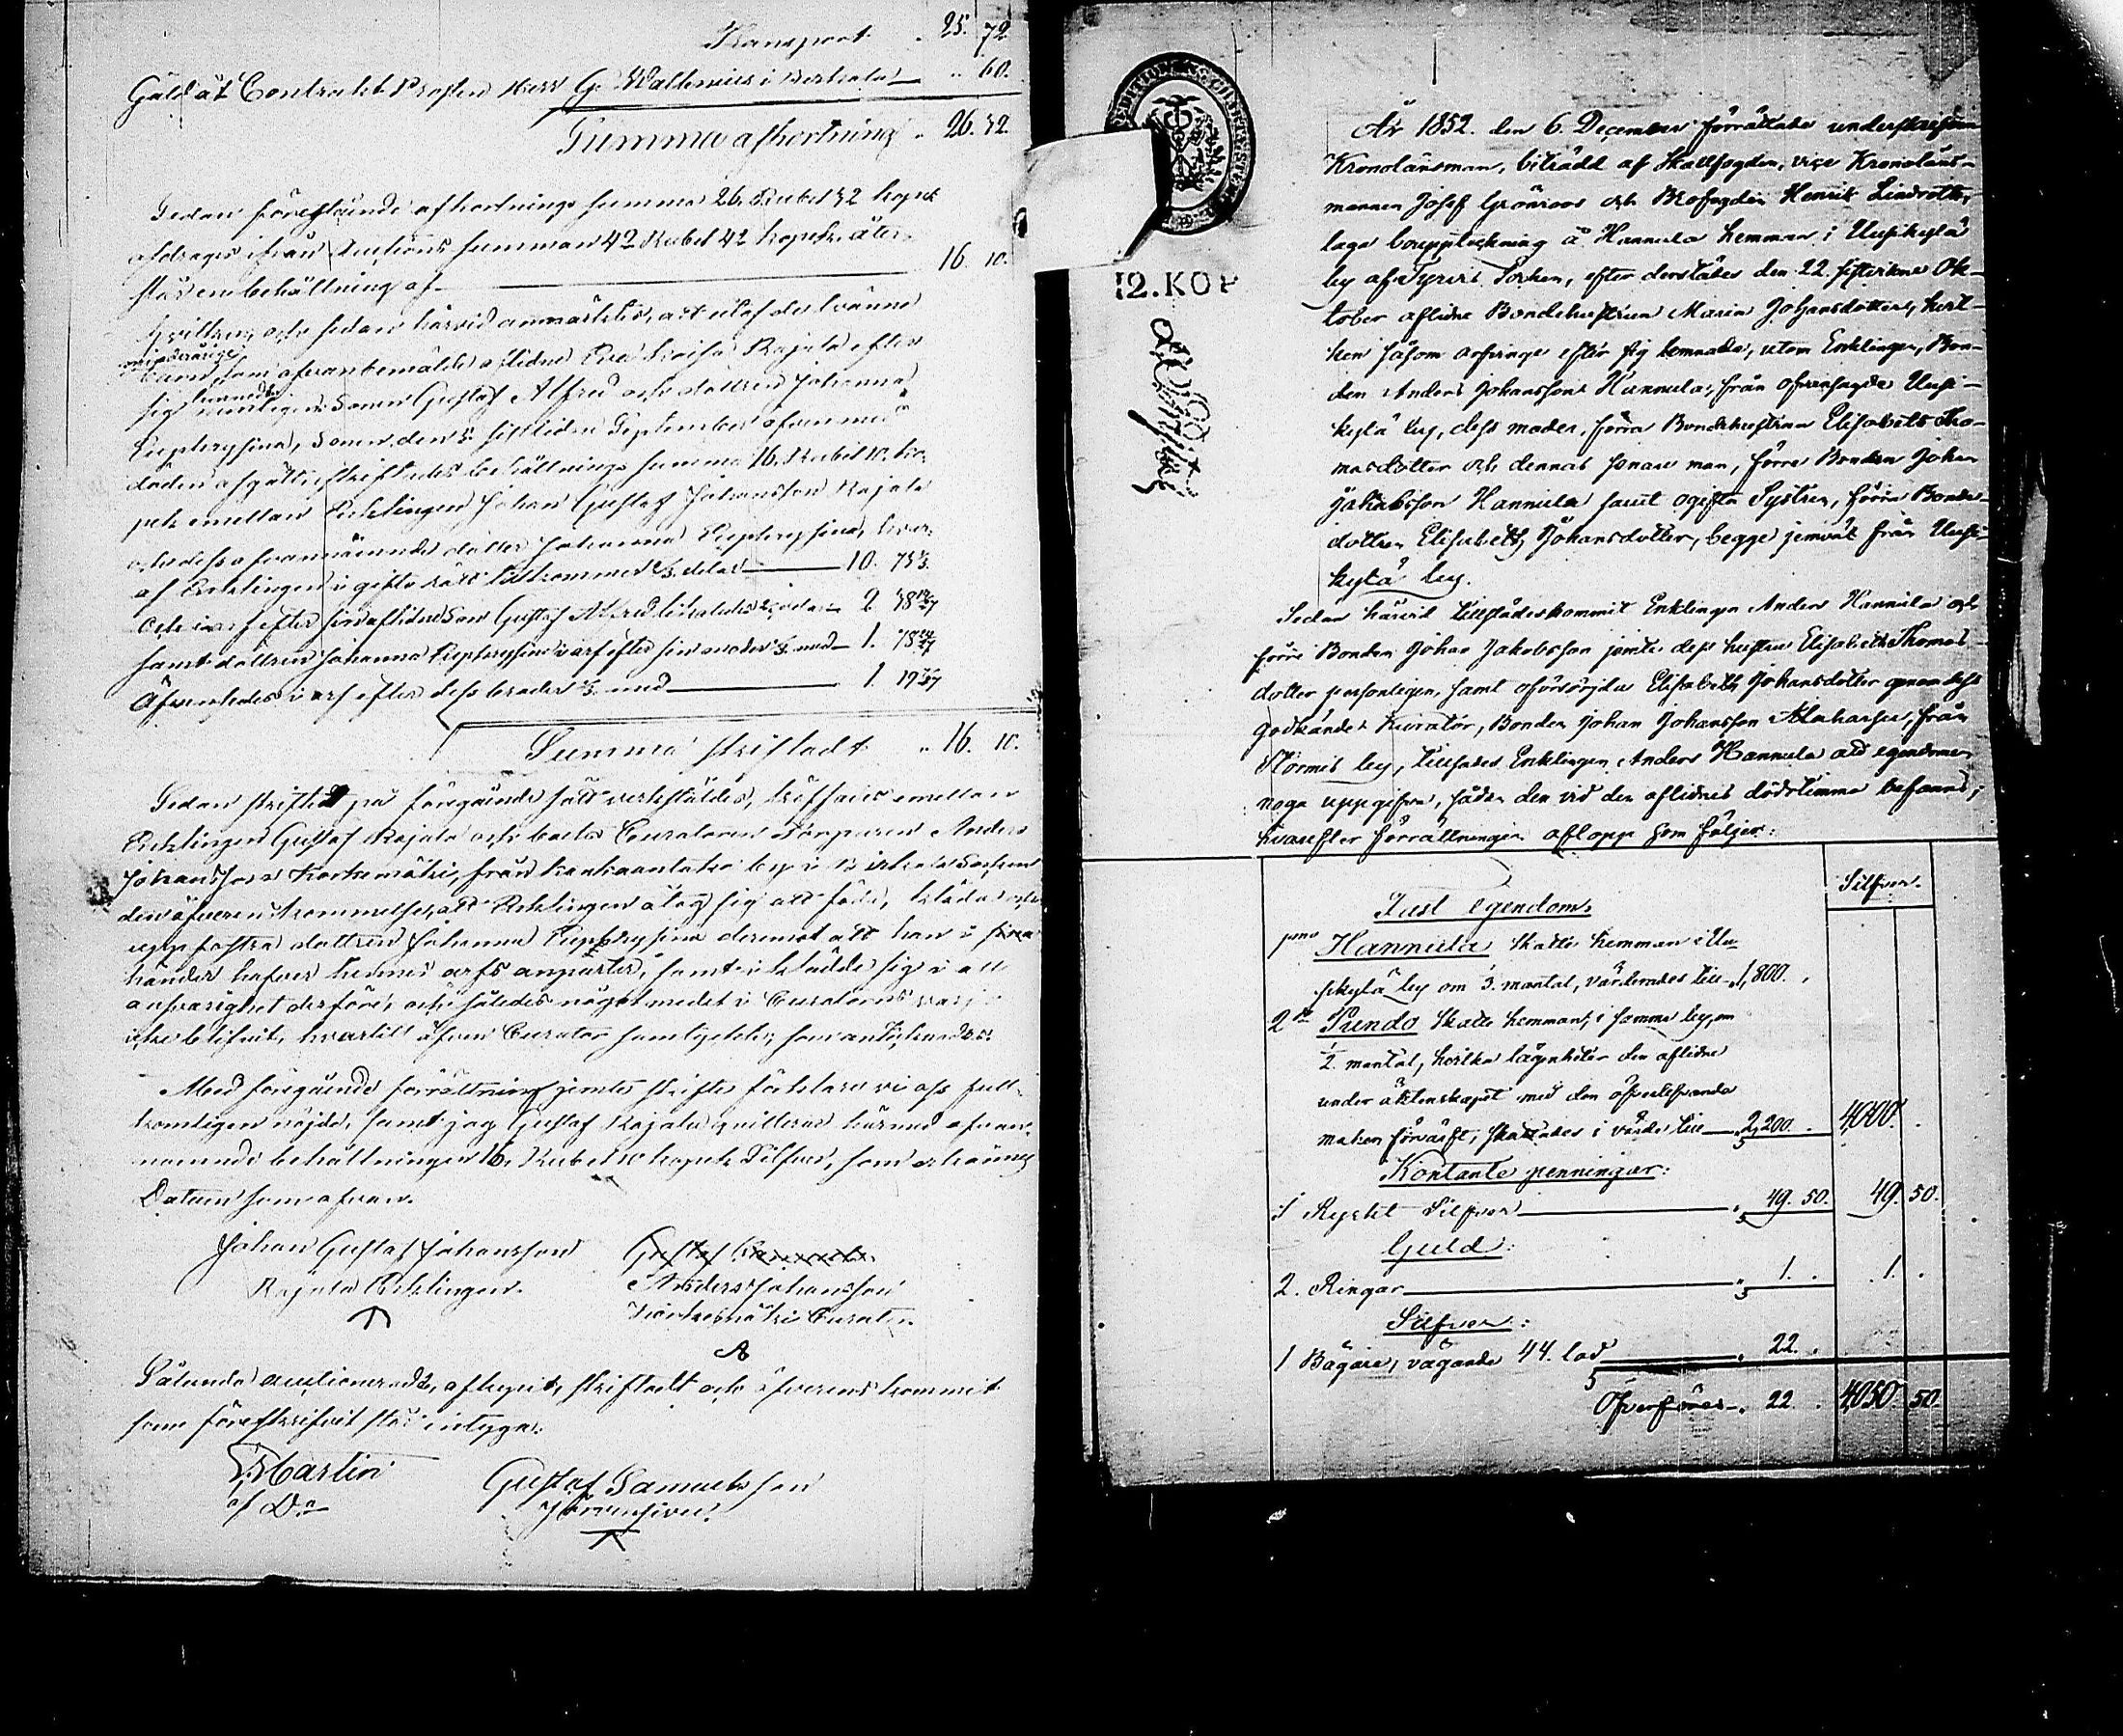 Transport 25. 72
Gäld åt Contrakts Prosten Herr G. Wallenius i Birkala " 60.
Summa afkortning . 26. 32.
Sedan föreståendе afkortnings summa 26. Rubel 32 kopek
afdrages ifrån Auctions summan 42 Rubel 42 kopek åter-
står en behållning af 16. 10.
hvilken, och sedan härvid anmärktes, att utaf de tvänne
minderårige
barn, som ofvanbemälde aflidne Eva Lovisa Rajala efter
lemnade
sig nemligen Sonen Gustaf Alfred och dottren Johanna
Euphrysina, Sonen den 5. sistlidne September äfven med
döden afgått, skiftades behållnings summa 16. Rubel 10. ko-
pek emellan Enklingen Johan Gustaf Johansson Rajala
och dess ofvannämnde dotter Johanna Euphrysina, hvar-
af Enklingen i giftorätt tillkommer 2/3 delar 10. 73 1/3
Och i arf efter sin aflidne Son Gustaf Alfred likaledes 2/3 delar 2
samt dottren Johanna Euphrysina i arf efter sin moder 1/3 med 1.
Äfvenledes i arf efter dess broder 1/3 med 1. 19
Summa skiftadt " 16. 10.
Sedan skiftet på föregående sätt verkstäldes, träffades emellan
Enklingen Gustaf Rajala och barnets Curatoren Torparen Anders
Johansson Korkemäki, från by i Birkala Socken
den öfverenskommelse, att Enklingen åtog sig att föda, kläda och
uppfostra dottren Johanna Euphrysina deremot att han i sina
händer hafver hennes arfs anparter, samt iklädde sig i allt
ansvarighet derföre, och således något medel i Curatorns varjo
icke blifvit, hvartill äfven Curator samtyckte; som antecknades.
Med föregående förrättning jemte skifte förklara vi oss full-
komligen nöjde, samt jag Gustaf Rajala quitterar härmed ofvan-
nämnde behållningen 16. Rubel 10 kopek Silfver, som erkännes
Datum som ofvan.
Johan Gustaf Johansson Gustaf
Rajala Enklingen. Anders Johansson
Korkemäki Curator.
Sålunda auctioneradt, aflupit, skiftadt och öfverenskommit
som föreskrifvit står intygar.
Martin Gustaf Samuelsson
af D:o
12. KOP
År 1852. den 6. December förrättade underskrifven
Kronolänsman, biträdd af Skallfogden, vice Kronoläns-
mannen Josef Grönroos och Brofogden Henrik Lindroth,
laga bouppteckning å Hannula hemman i Uusikylä
by af Tyrvis Socken, efter derstädes den 22. sistvikne Ok-
tober aflidne Bondehustrun Maria Johansdotter, hvil-
ken såsom arfvinge efter sig lemnade, utom Enklingen, Bon-
den Anders Johansson Hannula, från ofvansagde Uusi-
kylä by, dess moder, förra Bondehustrun Elisabeth Tho-
masdotter och dennas senare man, förre Bonden Johan
Jakobsson Hannula samt ogifta Systern, förra Bonde-
dottren Elisabeth Johansdotter, begge jemväl från Uusi-
kylä by.
Sedan härvid tillstädeskommit Enklingen Anders Hannula och
förre Bonden Johan Jakobsson jemte dess hustru Elisabeth Thomas-
dotter personligen, samt oförsörjda Elisabeth Johansdotter genom dess
godkände Kurator, Bonden Johan Johansson Alahaiju, från
Stormis by, tillsades Enklingen Anders Hannula att egendomen
noga uppgifva, sådan den vid den aflidnes dödstimma befanns;
hvarefter förrättningen aflopp som följer:
Silfver.
Fast egendom.
1mo Hannula Skatte hemman i Uu-
sikylä by om 1/3. mantal, värderades till 1,800. .
2do Pundo Skatte hemman, i samma by, om
1/2. mantal, hvilka lägenheter den aflidne
under äktenskapet med den öfverlefvande
maken förvärft, skattades i värde till 2,200. . 4,000. .
Kontante penningar:
I Ryskt Silfver 49. 50. 49. 50.
Guld:
2. Ringar 1. . 1. .
Silfver:
1 Bägare, vägande 44. lod 22. .
Öfverföres 22. . 4,050. 50